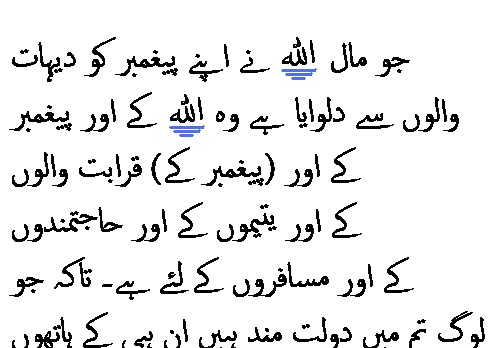 جو مال الله نے اپنے پیغمبر کو دیہات
والوں سے دلوایا ہے وہ الله کے اور پیغمبر
کے اور (پیغمبر کے) قرابت والوں
کے اور یتیموں کے اور حاجتمندوں
کے اور مسافروں کے لئے ہے۔ تاکہ جو
لوگ تم میں دولت مند ہیں ان ہی کے ہاتھوں